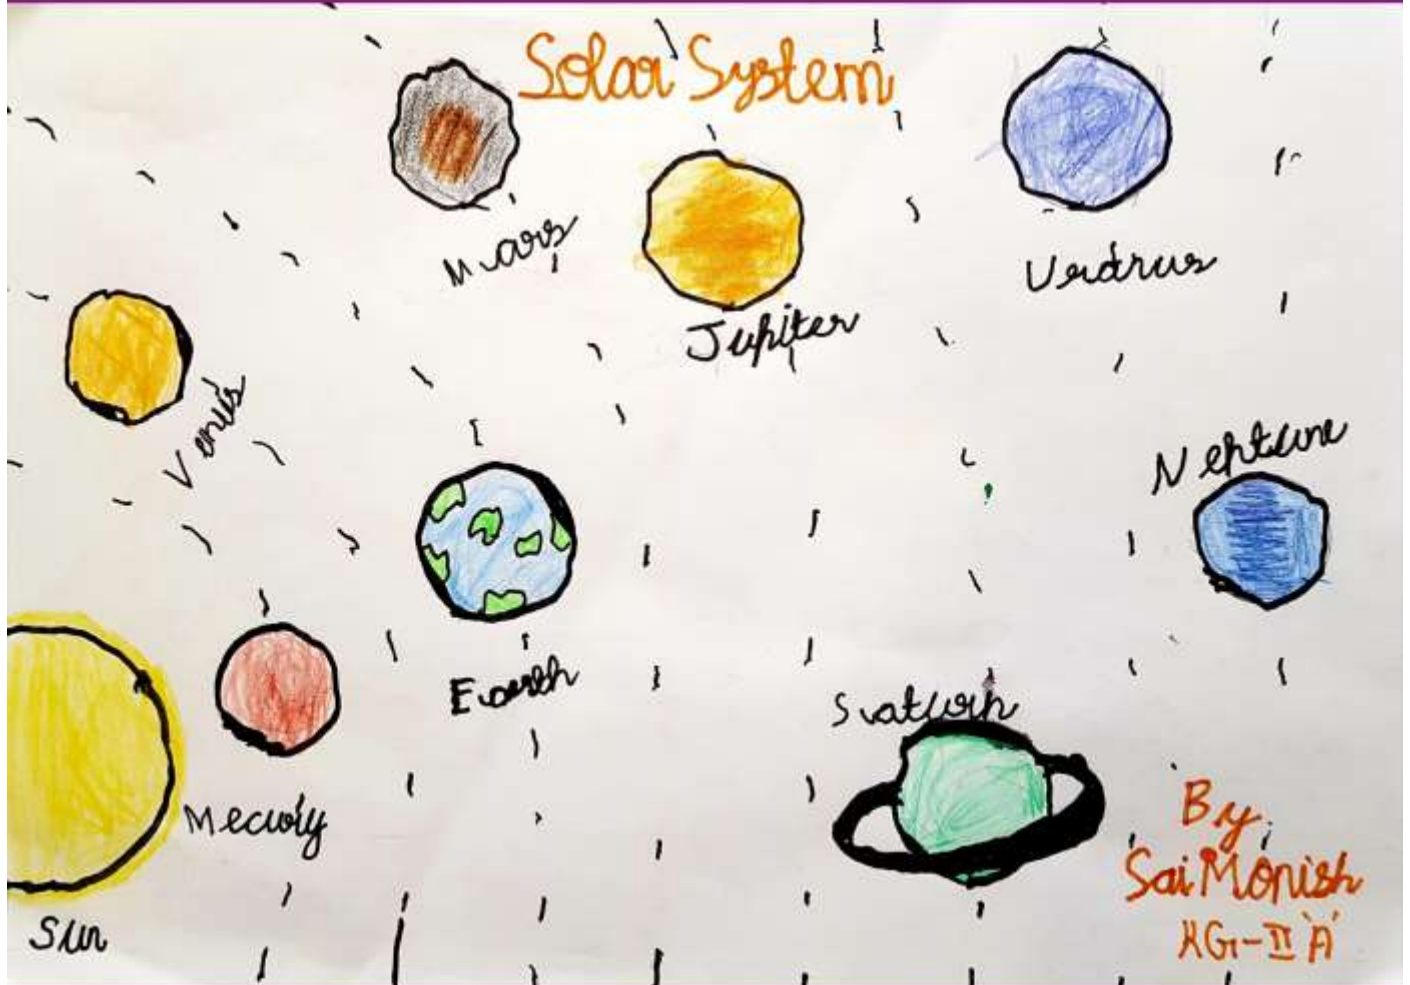 Solar System
Mars
Jupiter
Urarus
Venus
Neptune
Earth
Saturn
Mecury
Sun
By
Sai Monish
KG-II 'A'